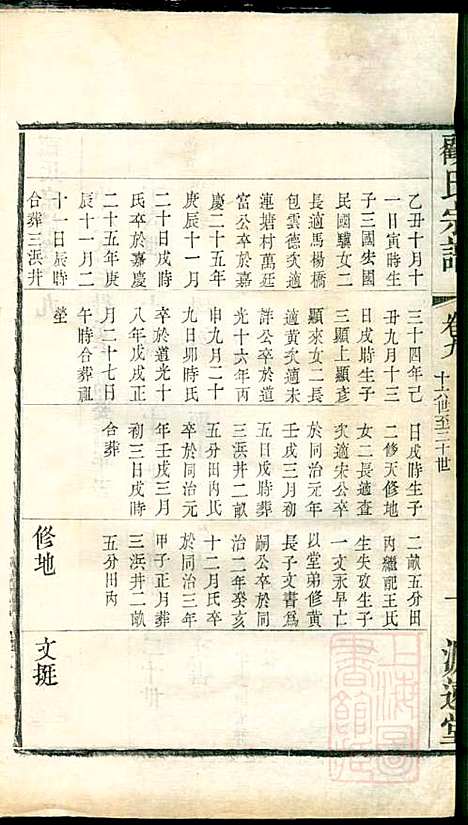 顧氏宗譜
卷九
十六世至二十世
一
源遠堂
乙丑十月十
一日寅時生
子三國宏國
民國驥女二
長適馬楊橋
包雲德次適
連塘村萬廷
富公卒於嘉
慶二十五年
庚辰十一月
二十日戌時
氏卒於嘉慶
二十五年庚
辰十一月二
十一日辰時
合葬三浜井
三十四年己
丑九月十三
日戌時生子
三顯上顯彥
顯來女二長
適黃次適宋
詳公卒於道
光十六年丙
申九月二十
九日卯時氏
卒於道光十
八年戊戌正
月二十七日
午時合葬祖
塋
日戌時生子
二修天修地
女二長適查
次適宋公卒
於同治元年
壬戌三月初
五日戌時葬
三浜井二畝
五分田內氏
卒於同治元
年壬戌三月
初三日戌時
合葬
二畝五分田
內繼配王氏
生失攷生子
一文永早亡
以堂弟修黃
長子文書爲
嗣公卒於同
治二年癸亥
十二月氏卒
於同治三年
甲子正月葬
三浜井二畝
五分田內
修地
文挺
上海圖書館藏